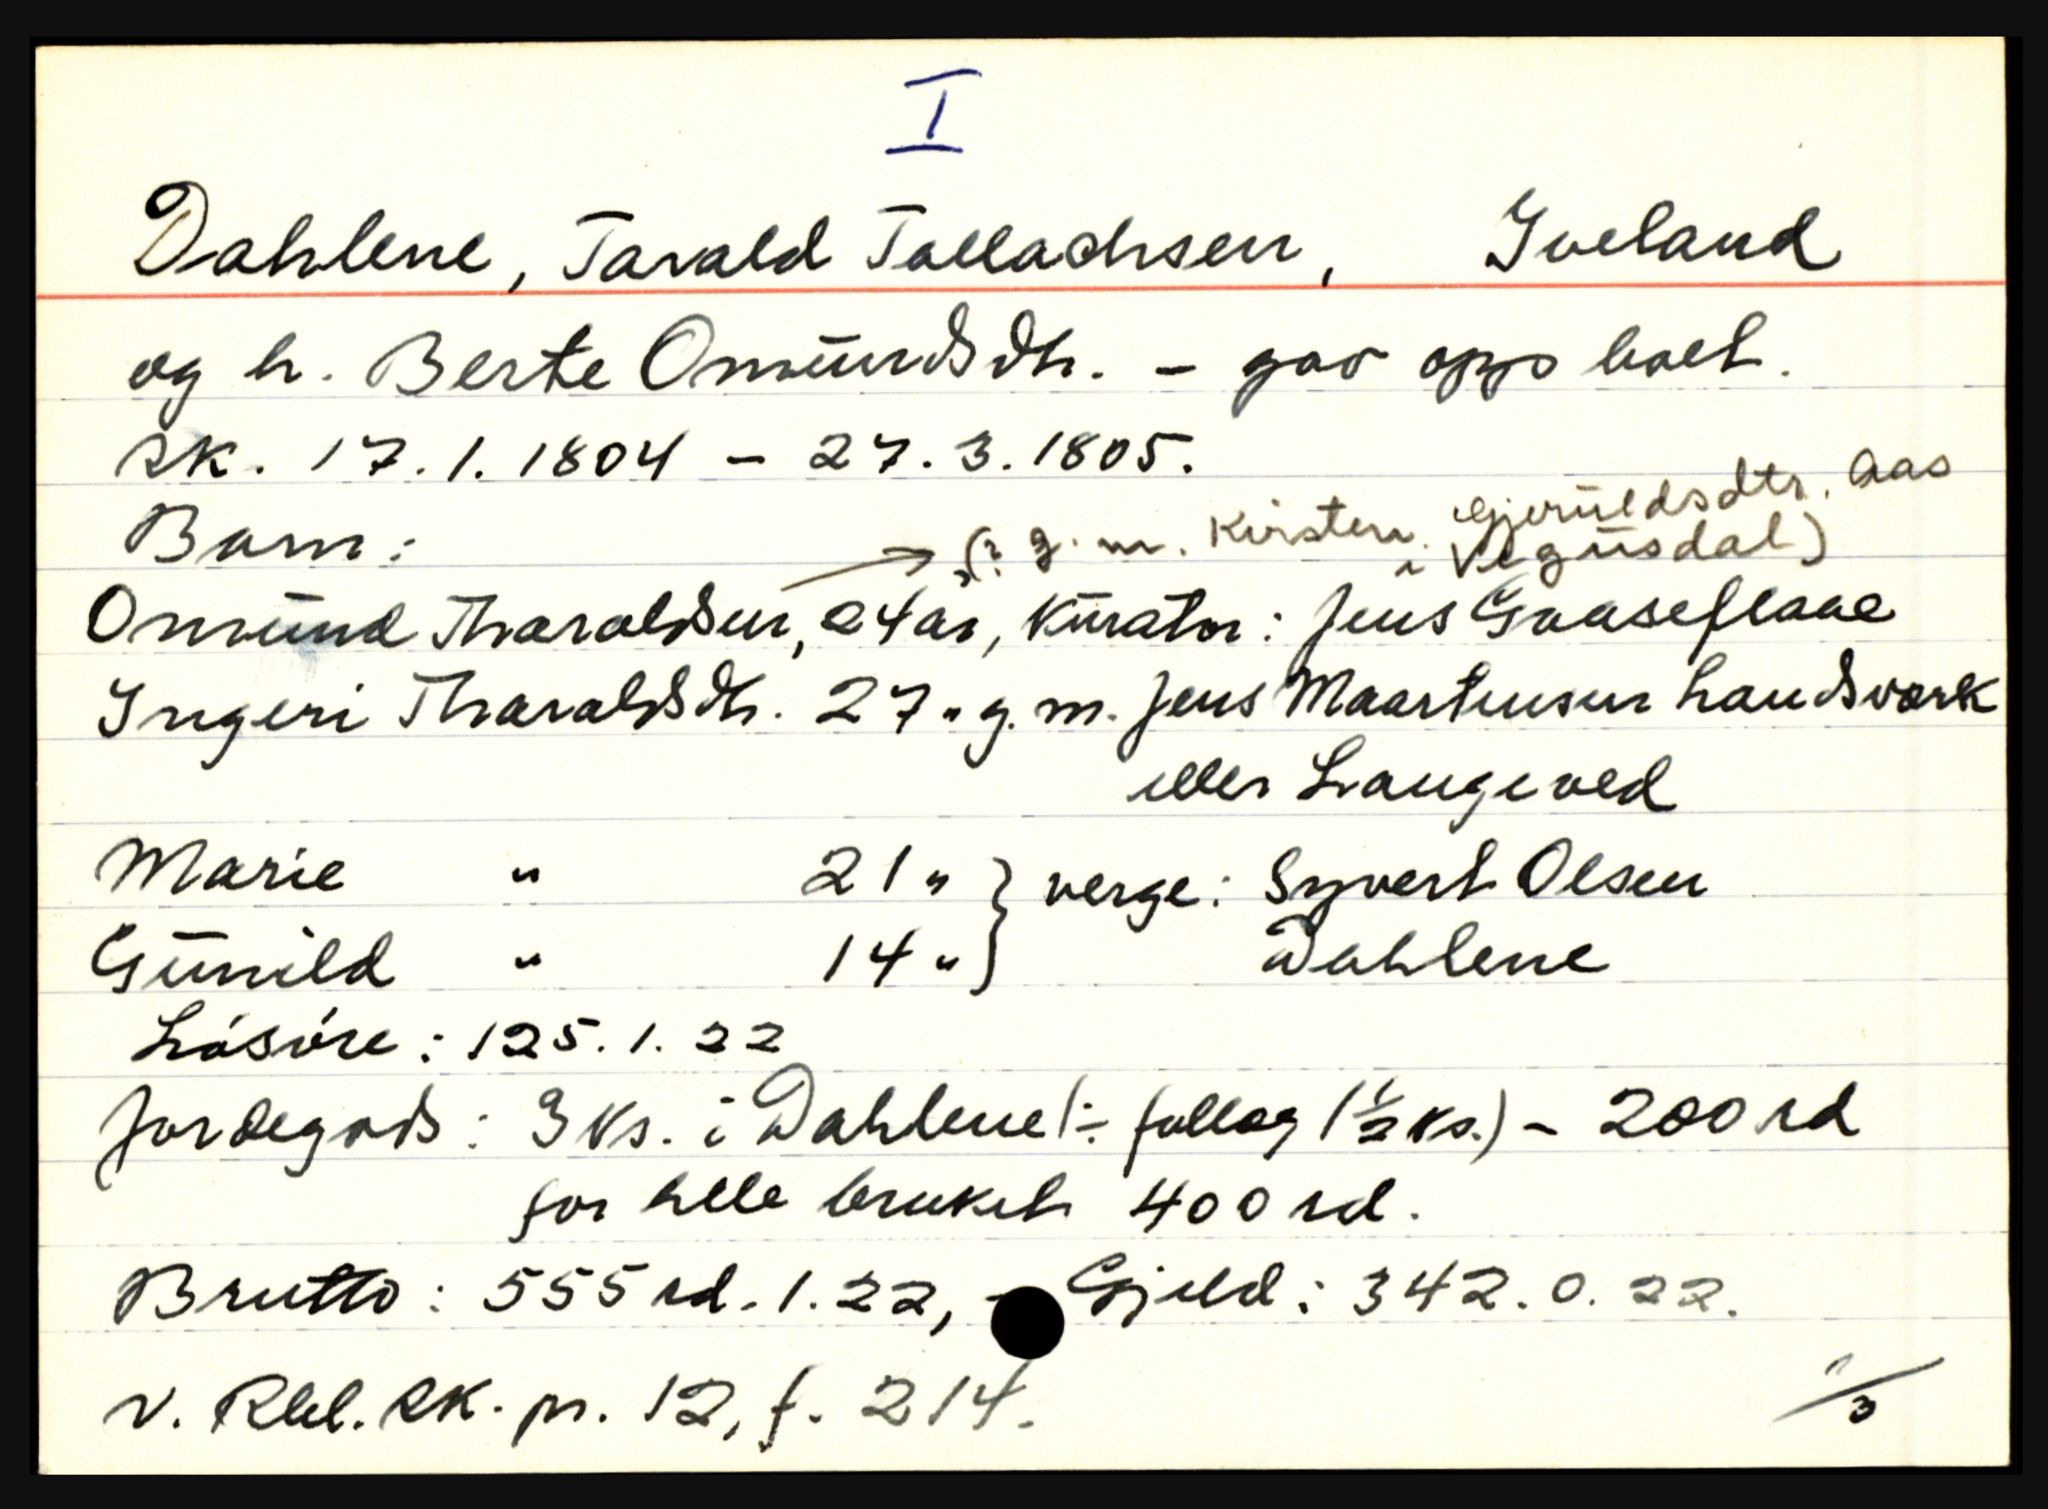 I
Dahlene, Tarald Tallachsen, Iveland
og h. Berte Omundsdtr. - gav opp boet.
sk. 17.1.1804 - 27.3.1805.
Barn:
→ (? g.m. Kirsten Gjeruldsdtr. Aas
i Vegusdal)
Omund Tharaldsen, 24 år, kurator: Jens Gaaseflaae
Ingeri Tharaldsdtr. 27 " g.m. Jens Maartensen Landsverk
eller Langeved
Marie " 21 " } verge: Syvert Olsen
Gunild " 14 " } Dahlene
Lósöre: 125.1.22
Jordegods: 3 ks. i Dahlene (÷ follog 1½ ks.) - 200 rd
for hele bruket 400 rd.
Brutto: 555 rd. 1.22, - Gjeld: 342.0.22.
v. Rbl. sk. pr. 12, f. 214.
1/3